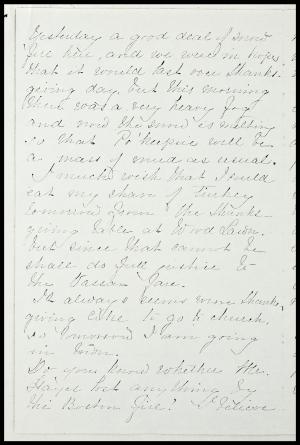 Yesterday a good deal of snow
fell here, and we were in hopes
that it would last over Thanks-
giving day, but this morning
there was a very heavy fog
and now the snow is melting
so that Po'keepsie will be
a mass of mud as usual.
I much wish that I could
eat my share of Turkey
tomorrow from the Thanks-
giving table at Wood Lawn.
but since that cannot be
shall do full justice to
the Vassar fare.
It always seems more Thanks-
giving like to go to church,
so tomorrow I am going
in town.
Do you know whether Mr.
Hayes lost anything by
the Boston Fire? I believe